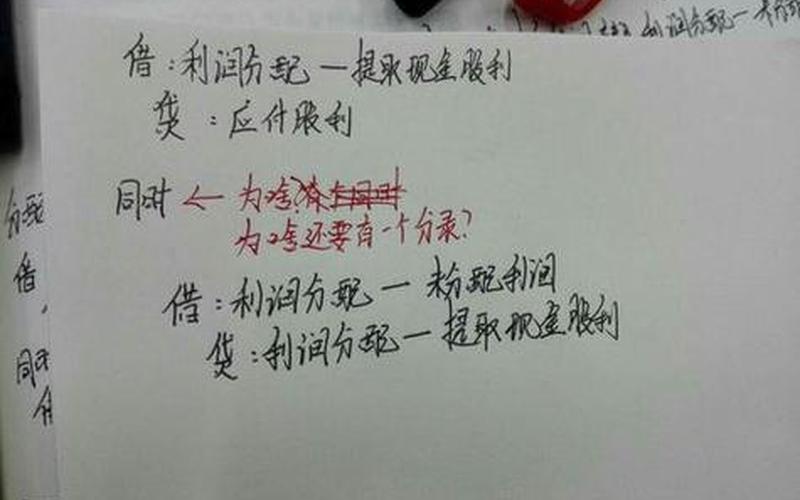 利润分配一
借：利润分配一提取现金股利
贷：应付股利
同时 ← 为啥
为啥还要有一个分录？
借：利润分配一未分配利润
贷：利润分配一提取现金股利
分配
借
同时